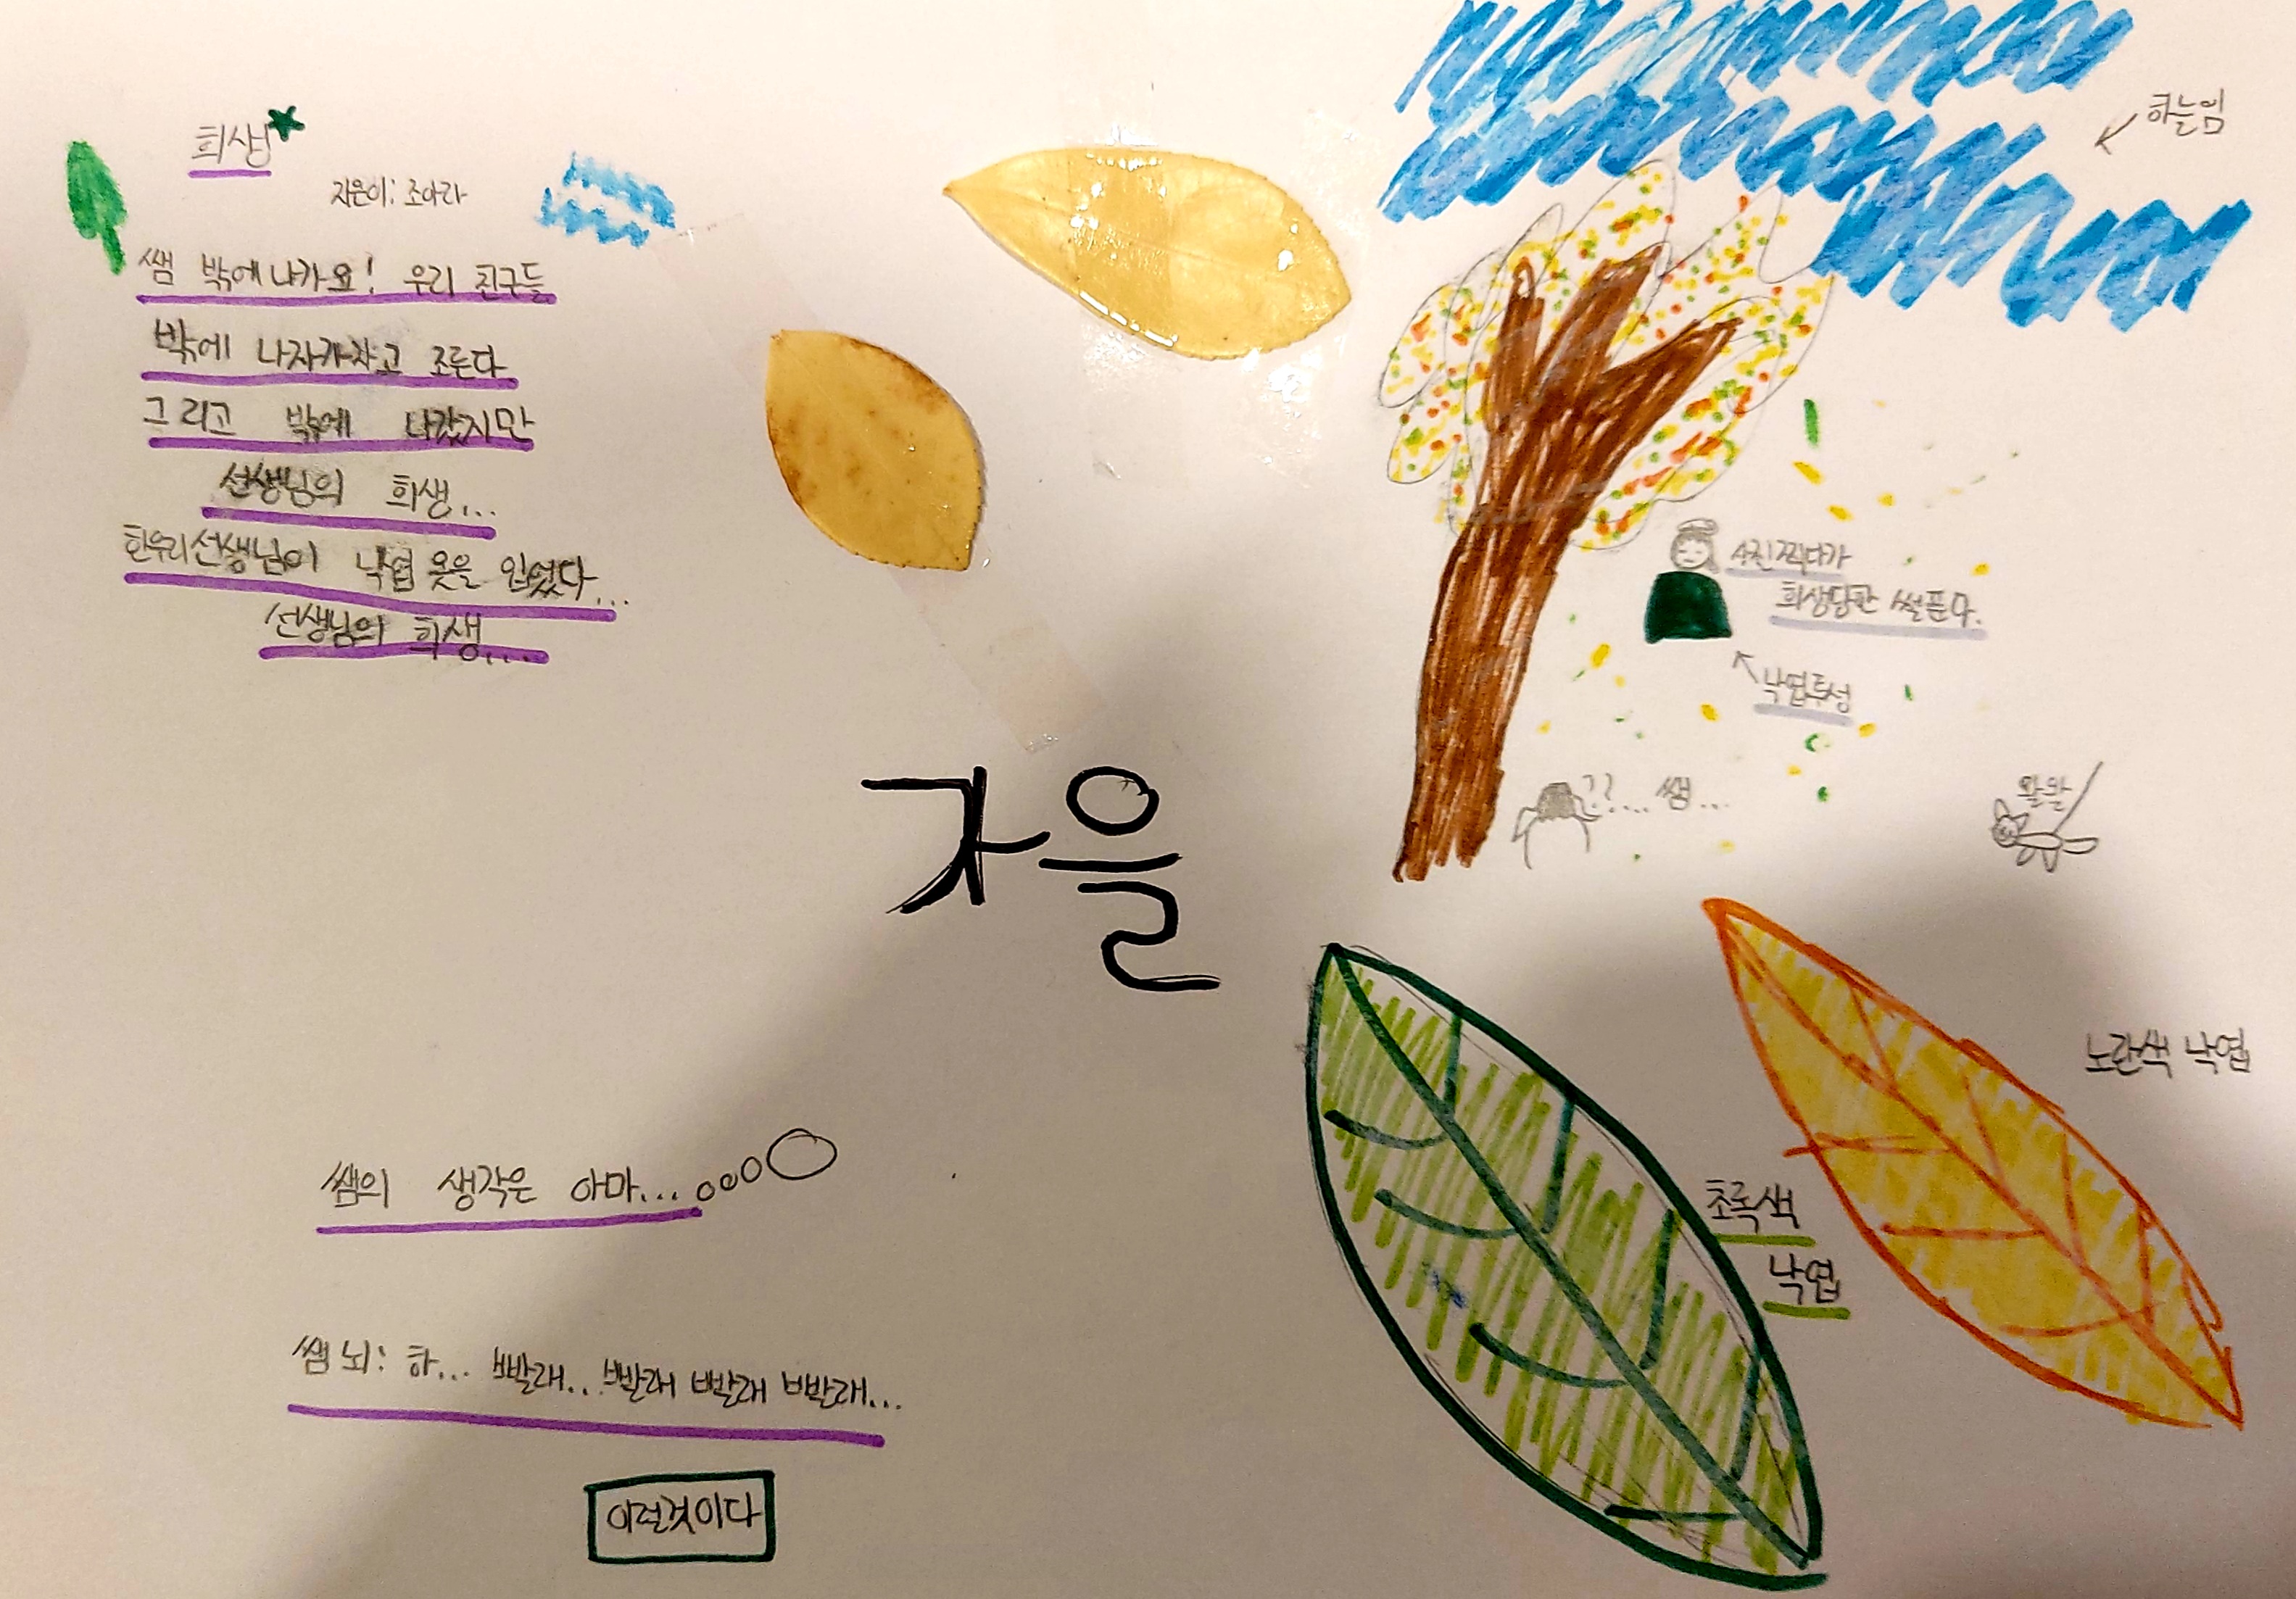 희생
지은이: 조아라
쌤 밖에 나가요! 우리 친구들
밖에 나자가자고 조른다
그리고 밖에 나갔지만
선생님의 희생...
한우리선생님이 낙엽 옷을 입었다...
선생님의 희생....
하늘임
사진찍다가
희생당한 썰푼다.
낙엽투성
??... 쌤...
왈왈
가을
노란색 낙엽
초록색
낙엽
쌤의 생각은 아마...
쌤 뇌: 하... 빨래... 빨래 빨래 빨래...
이럴것이다